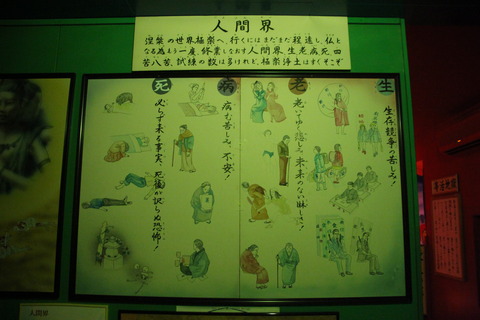 人間界
涅槃の世界極楽へ、行くにはまだまだ程遠し、仏と
なる為もう一度、修業しなおす人間界、生老病死、四
苦八苦、試練の数は多けれど、極楽浄土はすぐそこぞ
生
生存競争の苦しみ!
老
老いてゆく悲しみ、未来のない淋しさ!
病
病む苦しみ、不安!
死
必らず来る事実、死後が計らぬ恐怖!
人間界